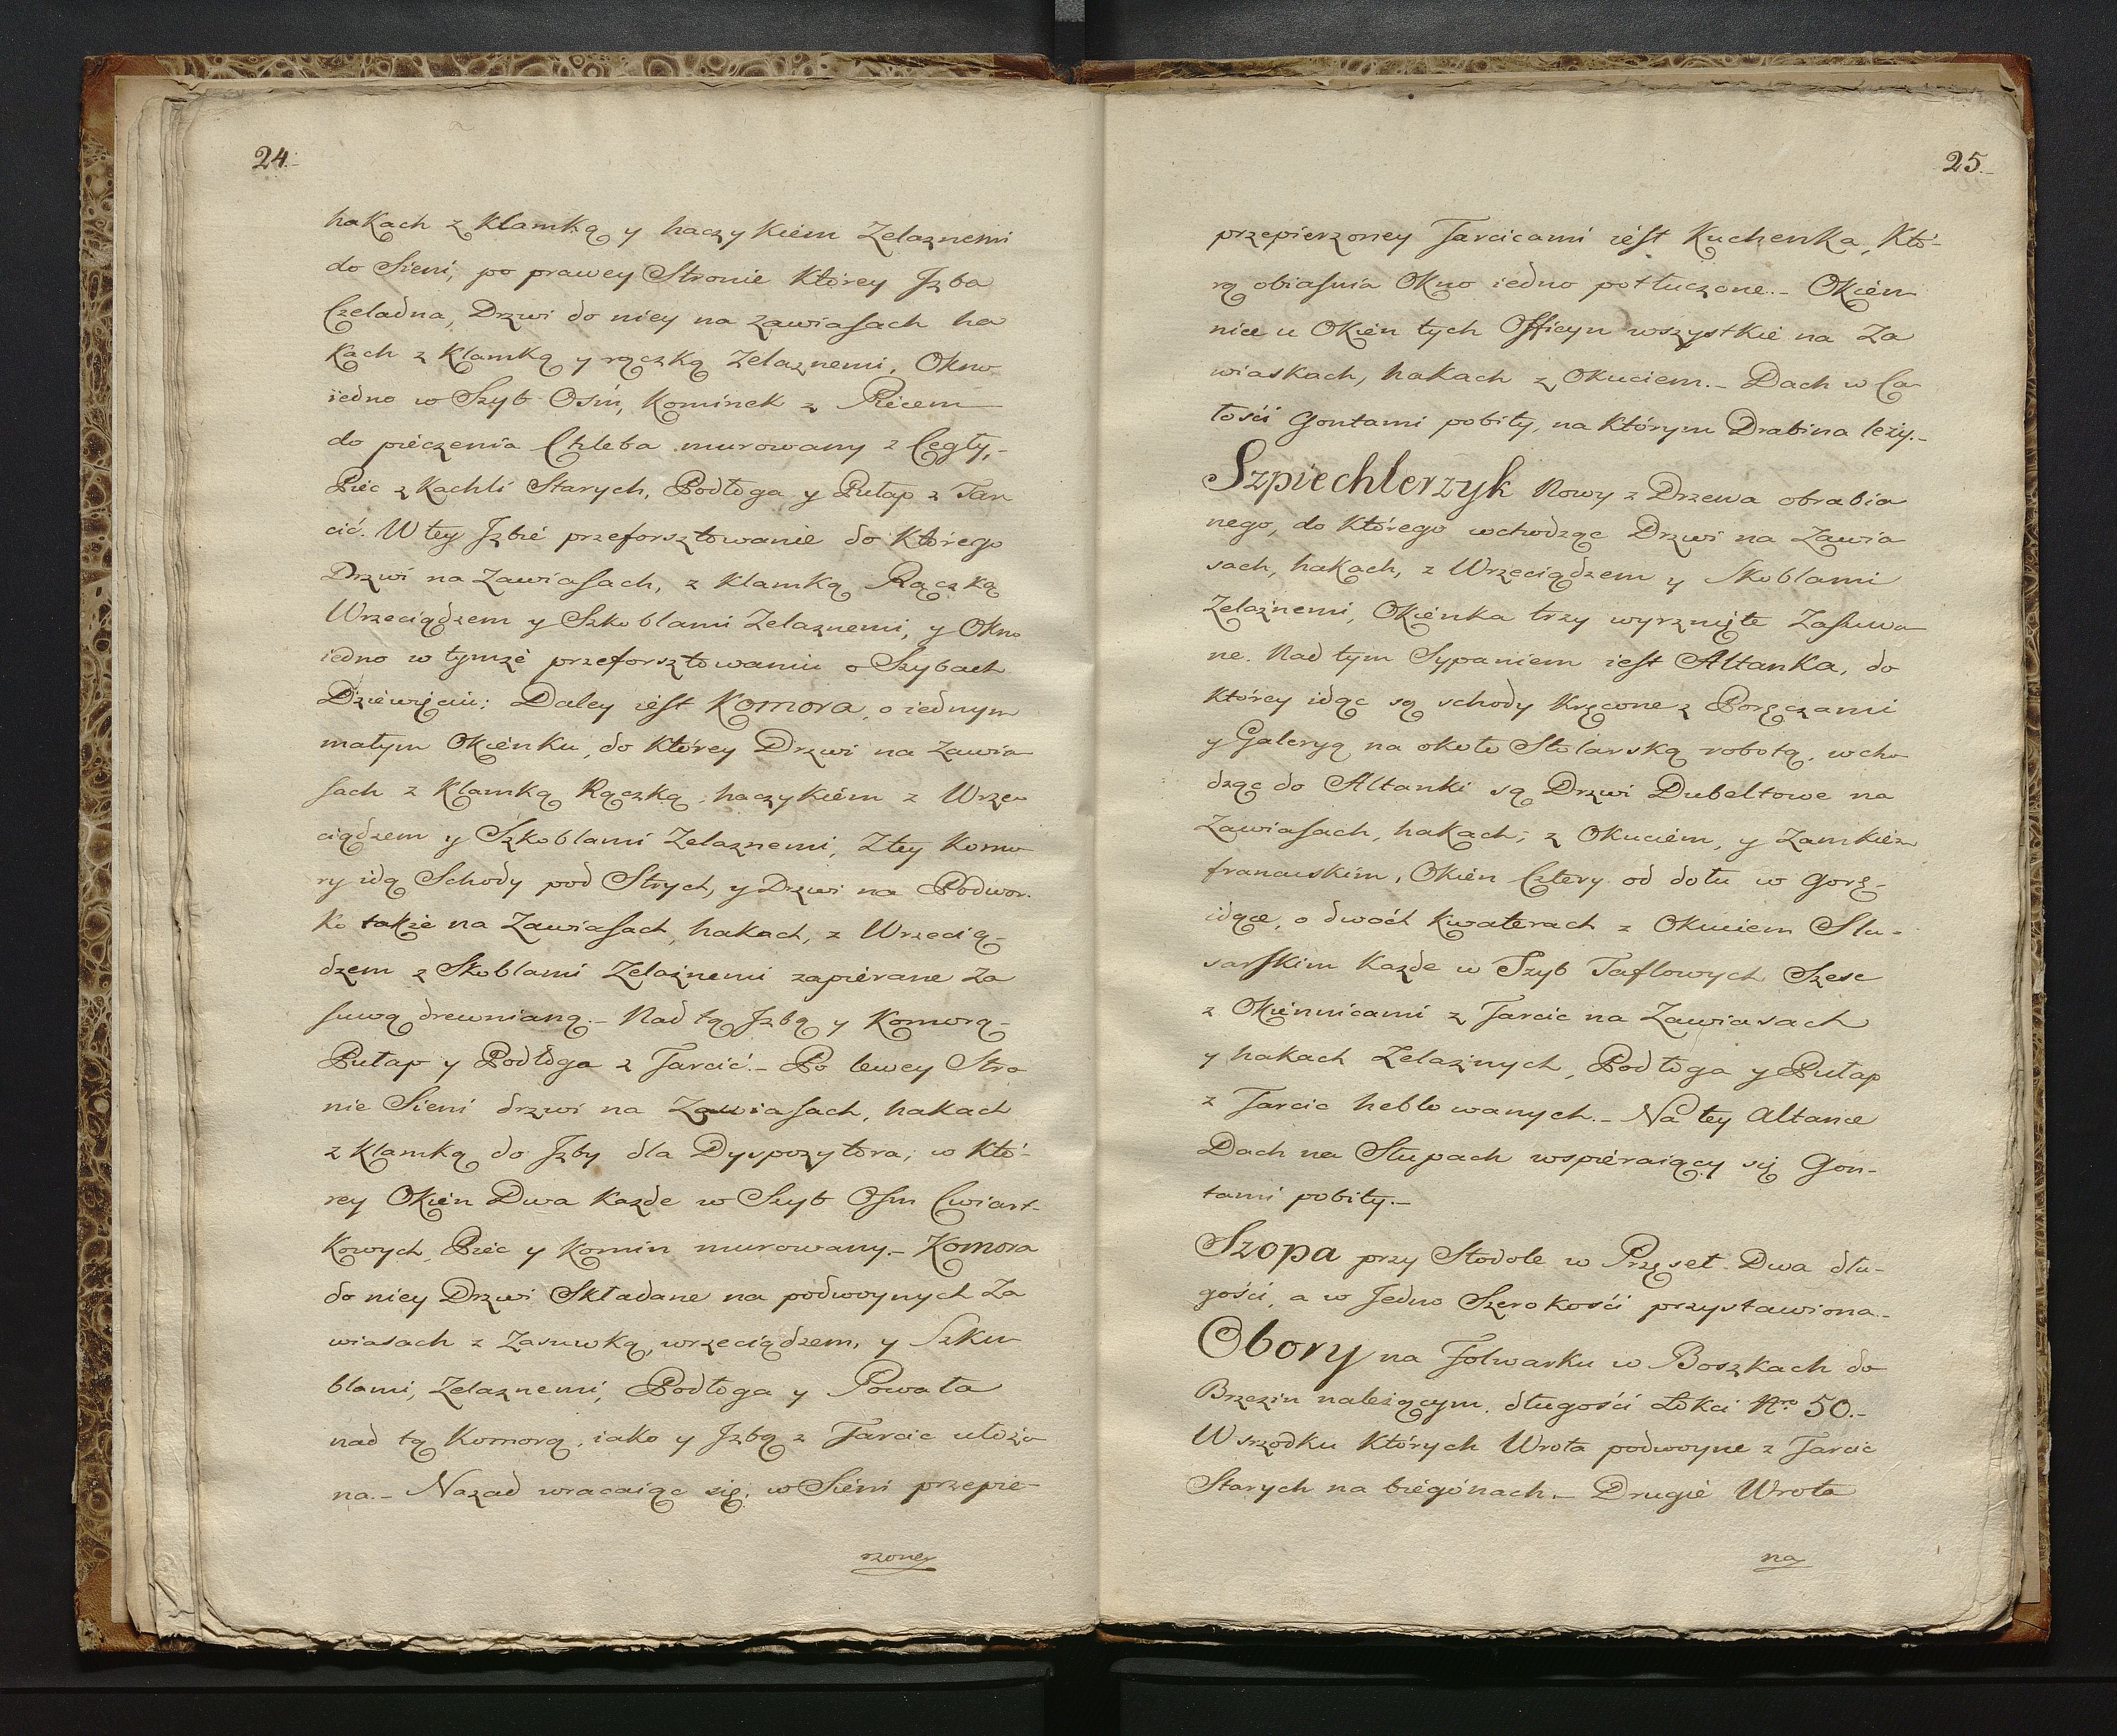 24.
hakach z Klamką y haczykiem Zelaznemi
do Sieni, po prawey Stronie Którey Jzba
Czeladna, Drzwi do niey na zawiasach ha
kach z Klamką y rączką Zelaznemi, Okno
iedno w Szyb Ośḿ, Kominek z Piecem
do pieczenia Chleba murowany z Cegły,-
Piec z Kachli Starych, Podłoga y Pułap z Tar
cić. W tey Jzbie przeforsztowanie do Którego
Drzwi na Zawiasach, z Klamką Rączką
Wrzeciądzem y Szkoblami Zelaznemi, y Okno
iedno w tymże przeforsztowaniu o Szybach
Dziewięciu; Daley iest Komora, o iednym
małym Okienku, do Którey Drzwi na Zawia
sach z Klamką Rączką, haczykiem z Wrze
ciądzem y Szkoblami Zelaznemi, Z tey Komo
ry idą Schody pod Strych, y Drzwi na Podwor.
Ko także na Zawiasach, hakach, z Wrzecią-
dzem z Skoblami Zelaźnemi zapierane Za
suwą drewnianą.- Nad tą Jzbą y Komorą-
Pułap y Podłoga z Tarcić.- Po lewey Stro
nie Sieni drzwi na Zawiasach, hakach
z Klamką do Jzby dla Dyspozytora; w Któ-
rey Okien Dwa Każde w Szyb Osm Cwiart-
Kowych, Piec y Komin murowany.- Komora
do niey Drzwi Składane na podwoynych Za
wiasach z Zasuwką, wrzeciądzem, y Szko
blami, Zelaznemi, Podłoga y Powała
nad tą Komorą, iako y Jzbą z Tarcic ułożo
na.- Nazad wracaiąc się; w Sieni przepie-
rzoney
25.-
przepierzoney Tarcicami iest Kuchenka, Któ-
rą obiasnia Okno iedno potłuczone.- Okien
nice u Okien tych Officyn wszystkie na Za
wiaskach, hakach z Okuciem.- Dach w Ca
łości Gontami pobity, na Którym Drabina leży.-
Szpiechlerzyk Nowy z Drzewa obrabia
nego, do Którego wchodząc Drzwi na Zawia
sach, hakach, z Wrzeciądzem y Skoblami
Zelaźnemi, Okienka trzy wyrznięte Zasuwa
ne. Nad tym Sypaniem iest Altanka, do
Którey idąc są schody Kręcone z Poręczami
y Galeryą na około Stolarską robotą, wcho
dząc do Altanki są Drzwi Dubeltowe na
Zawiasach, hakach; z Okuciem, y Zamkiem
francuskim, Okien Cztery od dołu w Gorę-
idące, o dwoch Kwaterach z Okuciem Slu-
sarskim Każde w Szyb Taflowych Szesc
z Okiennicami z Tarcic na Zawiasach
y hakach Zelaznych, Podłoga y Pułap
z Tarcic heblowanych.- Na tey Altance
Dach na Słupach wspieraiący się Gon-
tami pobity.-
Szopa przy Stodole w Przęseł Dwa dłu-
gości, a w Jedno Szerokości przystawiona.-
Obory na Folwarku w Boszkach do
Brzezin należącym, długości Łokci Nro 50.-
W srzodku Których Wrota podwoyne z Tarcic
Starych na biegónach.- Drugie Wrota
na